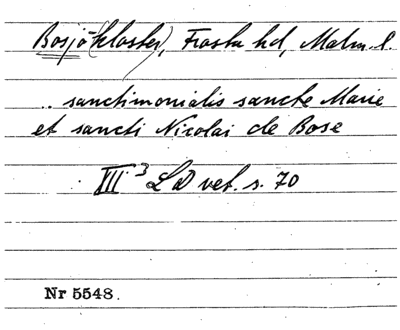 Bosjö(kloster), Frosta hd, Malm. l.
.. sanctimonialis sancte Marie
et sancti Nicolai de Bose
III 3 LD vet. s. 70
Nr 5548.